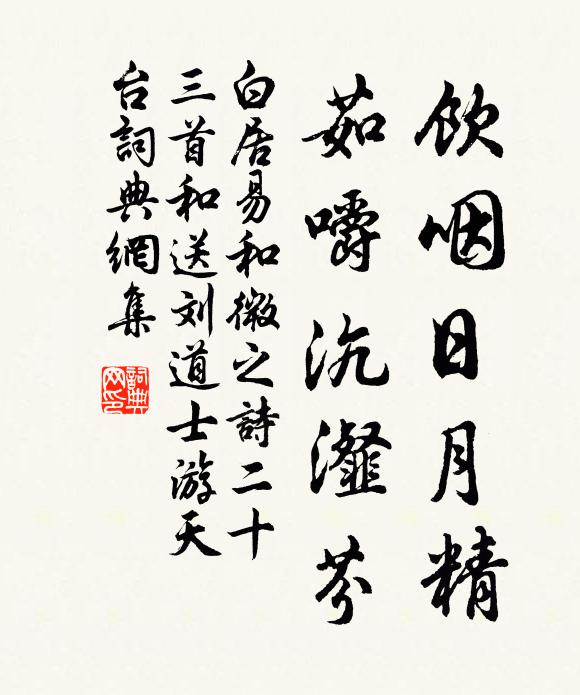 飲咽日月精
茹嚼沆瀣芬
白居易和微之詩二十
三首和送刘道士游天
台詞典網集
詞典
网印